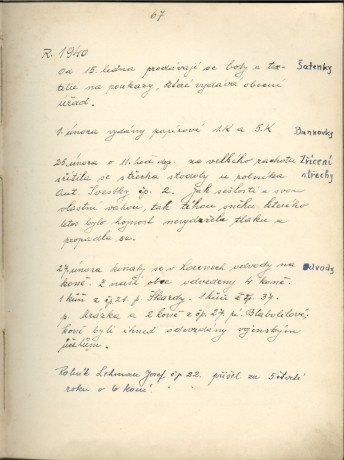 67.
R. 1940
Od 15. ledna prodávají se boty a tex- Šatenky
tilie na poukazy, které vydává obecní
úřad.
1. února vydány papírové 1K a 5K Bankovky
25. února o 11. hod dop. za velkého rachotu Zřícení
zřítila se střecha stodoly u rolníka střechy
Ant. Svestky čp 2. Jak sešlostí a svou
vlastní vahou, tak tíhou sněhu, kterého
letos bylo hojnost nevydržela tlaku a
propadla se.
27. února konaly se v odvody na Odvody
koně. Z naší obce odvedeny 4 koně.
1 kůň z čp 21. p. Škardy. 1 kůň z čp 37.
p. Krázka a 2 koně z čp 27. pí. Blabolilové;
koně byli ihned odevzdány vojenským
účelům.
Rolník Lehman Josef čp 22. přišel za 5 čtvrtí
roku o 6 koní.